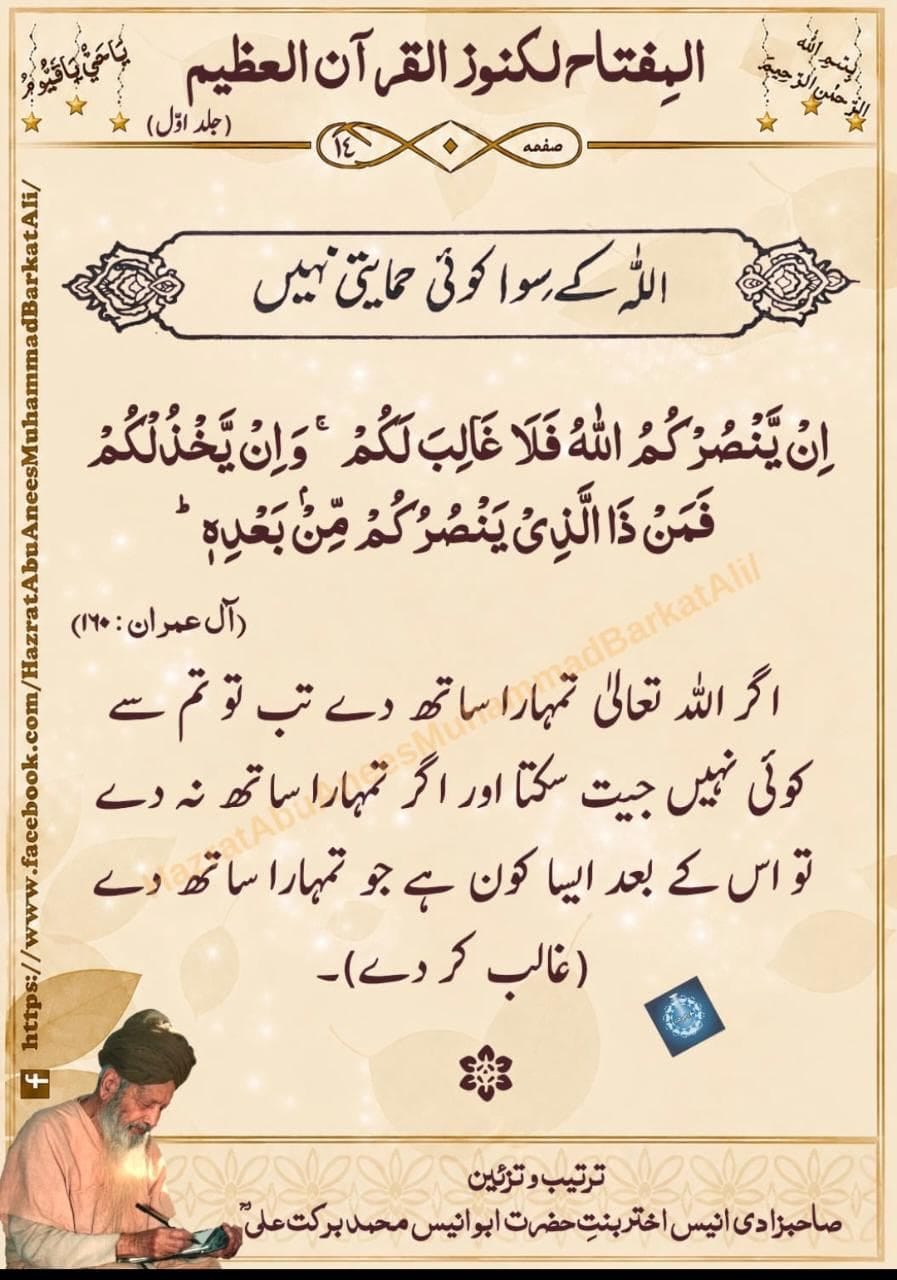 يَا حَيُّ يَا قَيُّومُ
بِسْمِ اللهِ
الرَّحْمٰنِ الرَّحِيمِ
المِفتاح لكنوز القرآن العظيم
(جلد اوّل)
صفحه ١٤
اللہ کے سِوا کوئی حمایتی نہیں
اِنْ یَّنْصُرْكُمُ اللّٰهُ فَلَا غَالِبَ لَكُمْ ۚ وَاِنْ یَّخْذُلْكُمْ
فَمَنْ ذَا الَّذِیْ یَنْصُرُكُمْ مِّنْۢ بَعْدِهٖ ؕ
(آل عمران : ۱۶۰)
اگر اللہ تعالیٰ تمہارا ساتھ دے تب تو تم سے
کوئی نہیں جیت سکتا اور اگر تمہارا ساتھ نہ دے
تو اس کے بعد ایسا کون ہے جو تمہارا ساتھ دے
(غالب کر دے)۔
HazratAbuAneesMuhammadBarkatAli/
https://www.facebook.com/HazratAbuAneesMuhammadBarkatAli/
ترتیب و تزئین
صاحبزادی انیس اختر بنتِ حضرت ابو انیس محمد برکت علیؒ